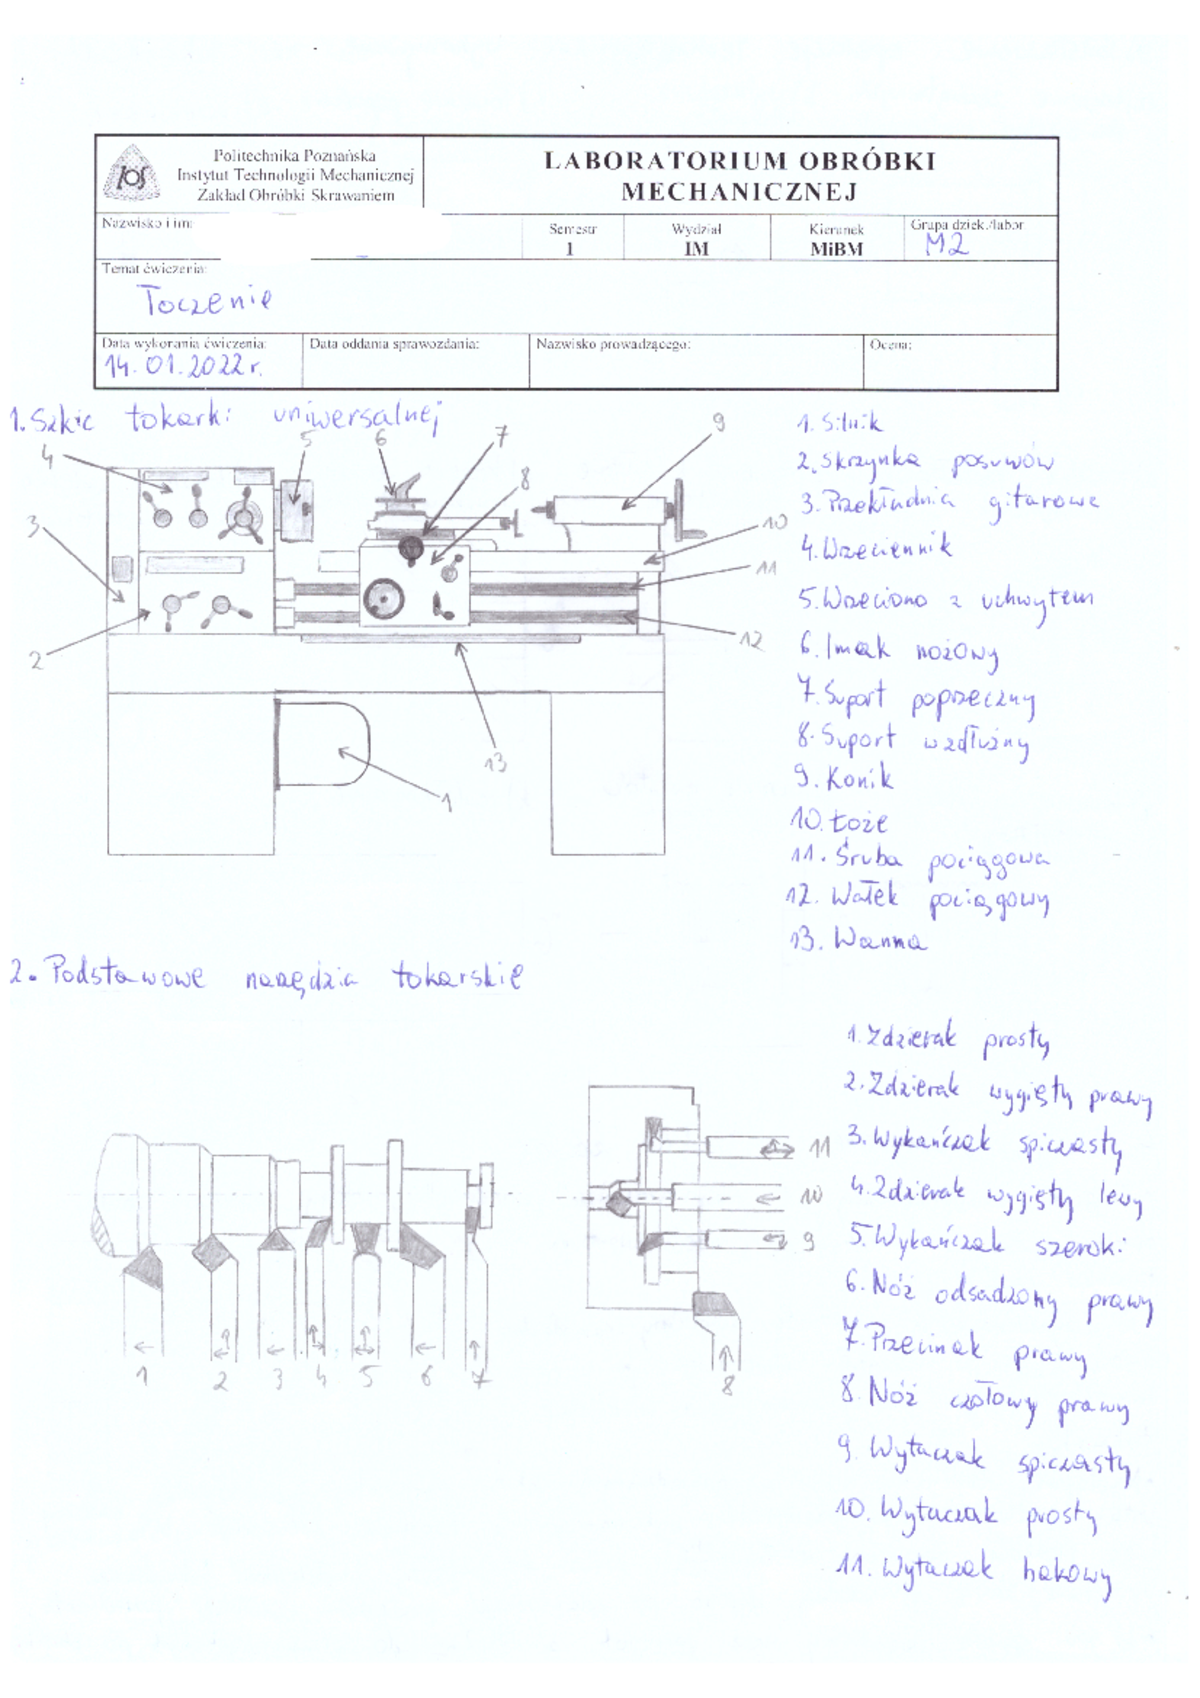 Politechnika Poznańska
Instytut Technologii Mechanicznej
Zakład Obróbki Skrawaniem
LABORATORIUM OBRÓBKI
MECHANICZNEJ
Nazwisko i im
Semestr
1
Wydział
IM
Kierunek
MiBM
Grupa dziek./labor
M2
Temat ćwiczenia:
Toczenie
Data wykonania ćwiczenia:
14.01.2022r.
Data oddania sprawozdania:
Nazwisko prowadzącego:
Ocena:
1. Szkic tokarki uniwersalnej
1. Silnik
2. Skrzynka posuwów
3. Przekładnia gitarowa
4. Wrzeciennik
5. Wrzeciono z uchwytem
6. Imak nożowy
7. Suport poprzeczny
8. Suport wzdłużny
9. Konik
10. Łoże
11. Śruba pociągowa
12. Wałek pociągowy
13. Wanna
4
5
6
7
8
9
3
10
11
2
12
13
1
2. Podstawowe narzędzia tokarskie
1. Zdzierak prosty
2. Zdzierak wygięty prawy
3. Wykańczak spiczasty
4. Zdzierak wygięty lewy
5. Wykańczak szeroki
6. Nóż odsadzony prawy
7. Przecinak prawy
8. Nóż czołowy prawy
9. Wytaczak spiczasty
10. Wytaczak prosty
11. Wytaczak hakowy
11
10
9
1 2 3 4 5 6 7
8